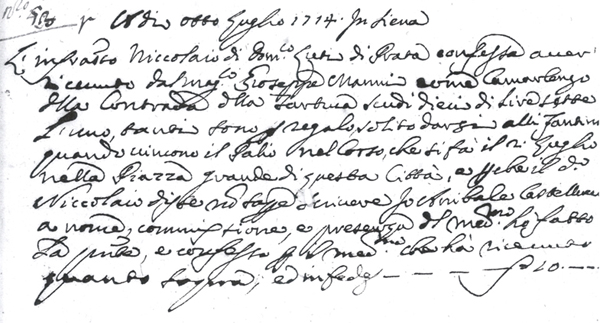 Adi otto Luglio 1714. In Siena
L'infratto Niccolaio di Dom.co di Prata confessa aver
ricevuto dal mag.co Gioseppe Mannini come Camarlengo
della Contrada della Tartuca scudi dieci di lire sette
l'uno, tanti sono p regalo solito darsi alli Fantini
quando vincono il Palio nel Corso, che si fà il 2 Luglio
nella Piazza grande di questa Città, e p che il d.o
Niccolaio disse nō sape scrivere Io Anibale Castellucci
a nome, commissione, e presenza del med.mo hò fatto
la pnte, e confesso p il med.mo che hà ricevuto
quanto sopra, ed in fede — — — 10 —